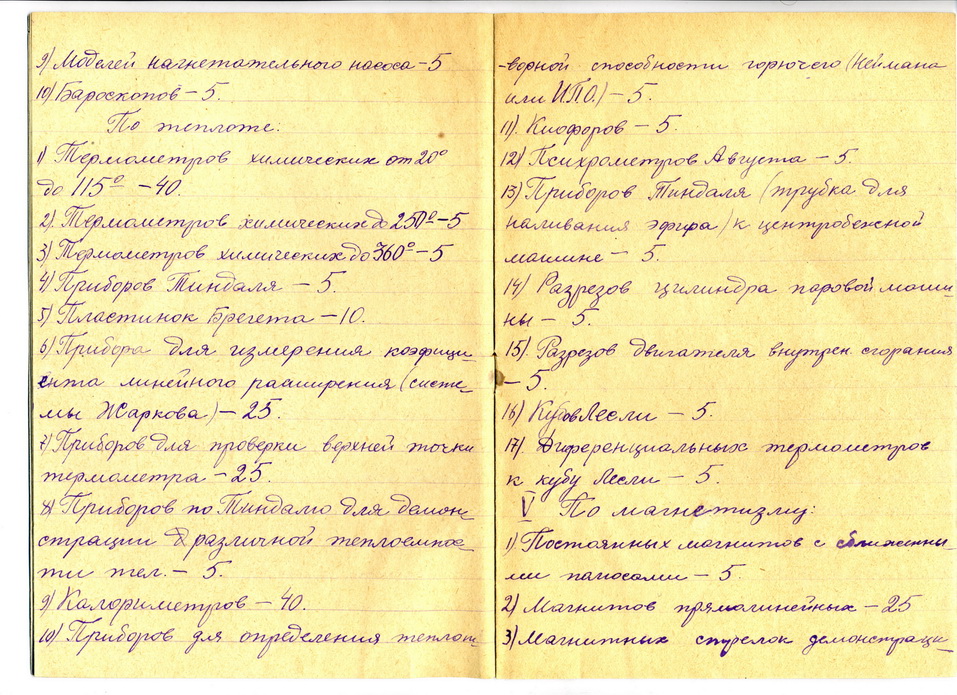 9) Моделей нагнетательного насоса – 5
10) Бароскопов – 5.
По теплоте:
1) Термометров химических от 20°
до 115° – 40.
2) Термометров химических до 250° – 5
3) Термометров химических до 360° – 5
4) Приборов Тиндаля – 5.
5) Пластинок Брегета – 10.
6) Прибора для измерения коэфици-
ента линейного расширения (систе-
мы Жаркова) – 25.
7) Приборов для проверки верхней точки
термометра – 25.
8) Приборов по Тиндалю для демон-
страции различной теплоемнос-
ти тел. – 5.
9) Калориметров – 40.
10) Приборов для определения теплот-
-ворной способности горючего (Неймана
или ИПО) – 5.
11). Киофоров – 5.
12) Психрометров Августа – 5.
13) Приборов Тиндаля (трубка для
наливания эфира) к центробежной
машине – 5.
14) Разрезов цилиндра паровой маши-
ны – 5.
15) Разрезов двигателя внутрен. сгорания
– 5.
16) Кубов Лесли – 5.
17). Диференциальных термометров
к кубу Лесли – 5.
V По магнетизму:
1) Постоянных магнитов с сближенны-
ми полюсами – 5.
2) Магнитов прямолинейных – 25
3) Магнитных стрелок демонстраци-